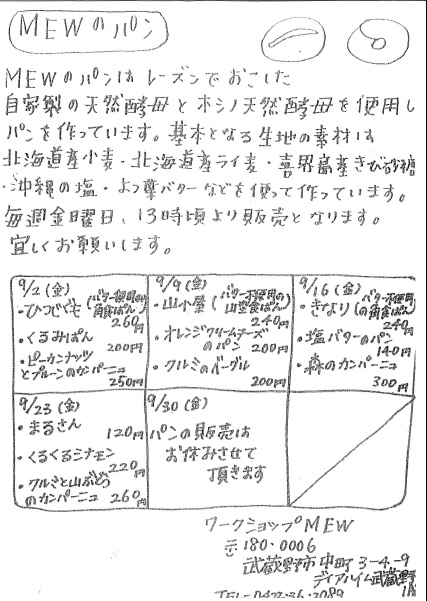 MEWのパン
MEWのパンはレーズンでおこした
自家製の天然酵母とホシノ天然酵母を使用し
パンを作っています。基本となる生地の素材は
北海道産小麦・北海道産ライ麦・喜界島産きび砂糖
・沖縄の塩・よつ葉バターなどを使って作っています。
毎週金曜日、13時頃より販売となります。
宜しくお願いします。
9/2(金)
・ひつじぐも(バター使用の角食ぱん)
260円
・くるみぱん
200円
・ピーカンナッツ
とプルーンのカンパーニュ
250円
9/9(金)
・山小屋(バター不使用の山型食ぱん)
240円
・オレンジクリームチーズ
のパン 200円
・クルミのベーグル
200円
9/16(金)
・きなり(バター不使用の角食ぱん)
240円
・塩バターのパン
140円
・森のカンパーニュ
300円
9/23(金)
・まるさん
120円
・くるくるシナモン
220円
・クルミと山ぶどう
のカンパーニュ 260円
9/30(金)
パンの販売は
お休みさせて
頂きます
ワークショップMEW
〒180-0006
武蔵野市中町3-4-9
ディアハイム武蔵野
TEL-0422-36-2089